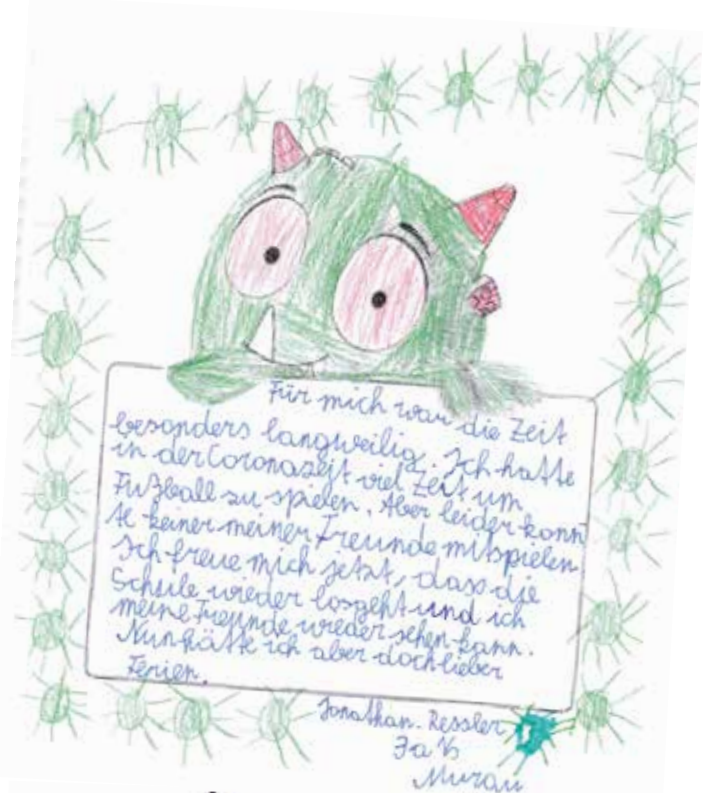 Für mich war die Zeit
besonders langweilig. Ich hatte
in der Coronazeit viel Zeit um
Fußball zu spielen. Aber leider konn
te keiner meiner Freunde mitspielen
Ich freue mich jetzt, dass die
Schule wieder losgeht und ich
meine Freunde wieder sehen kann.
Nun hätte ich aber doch lieber
Ferien.
Jonathan Ressler
3a VS
Murau